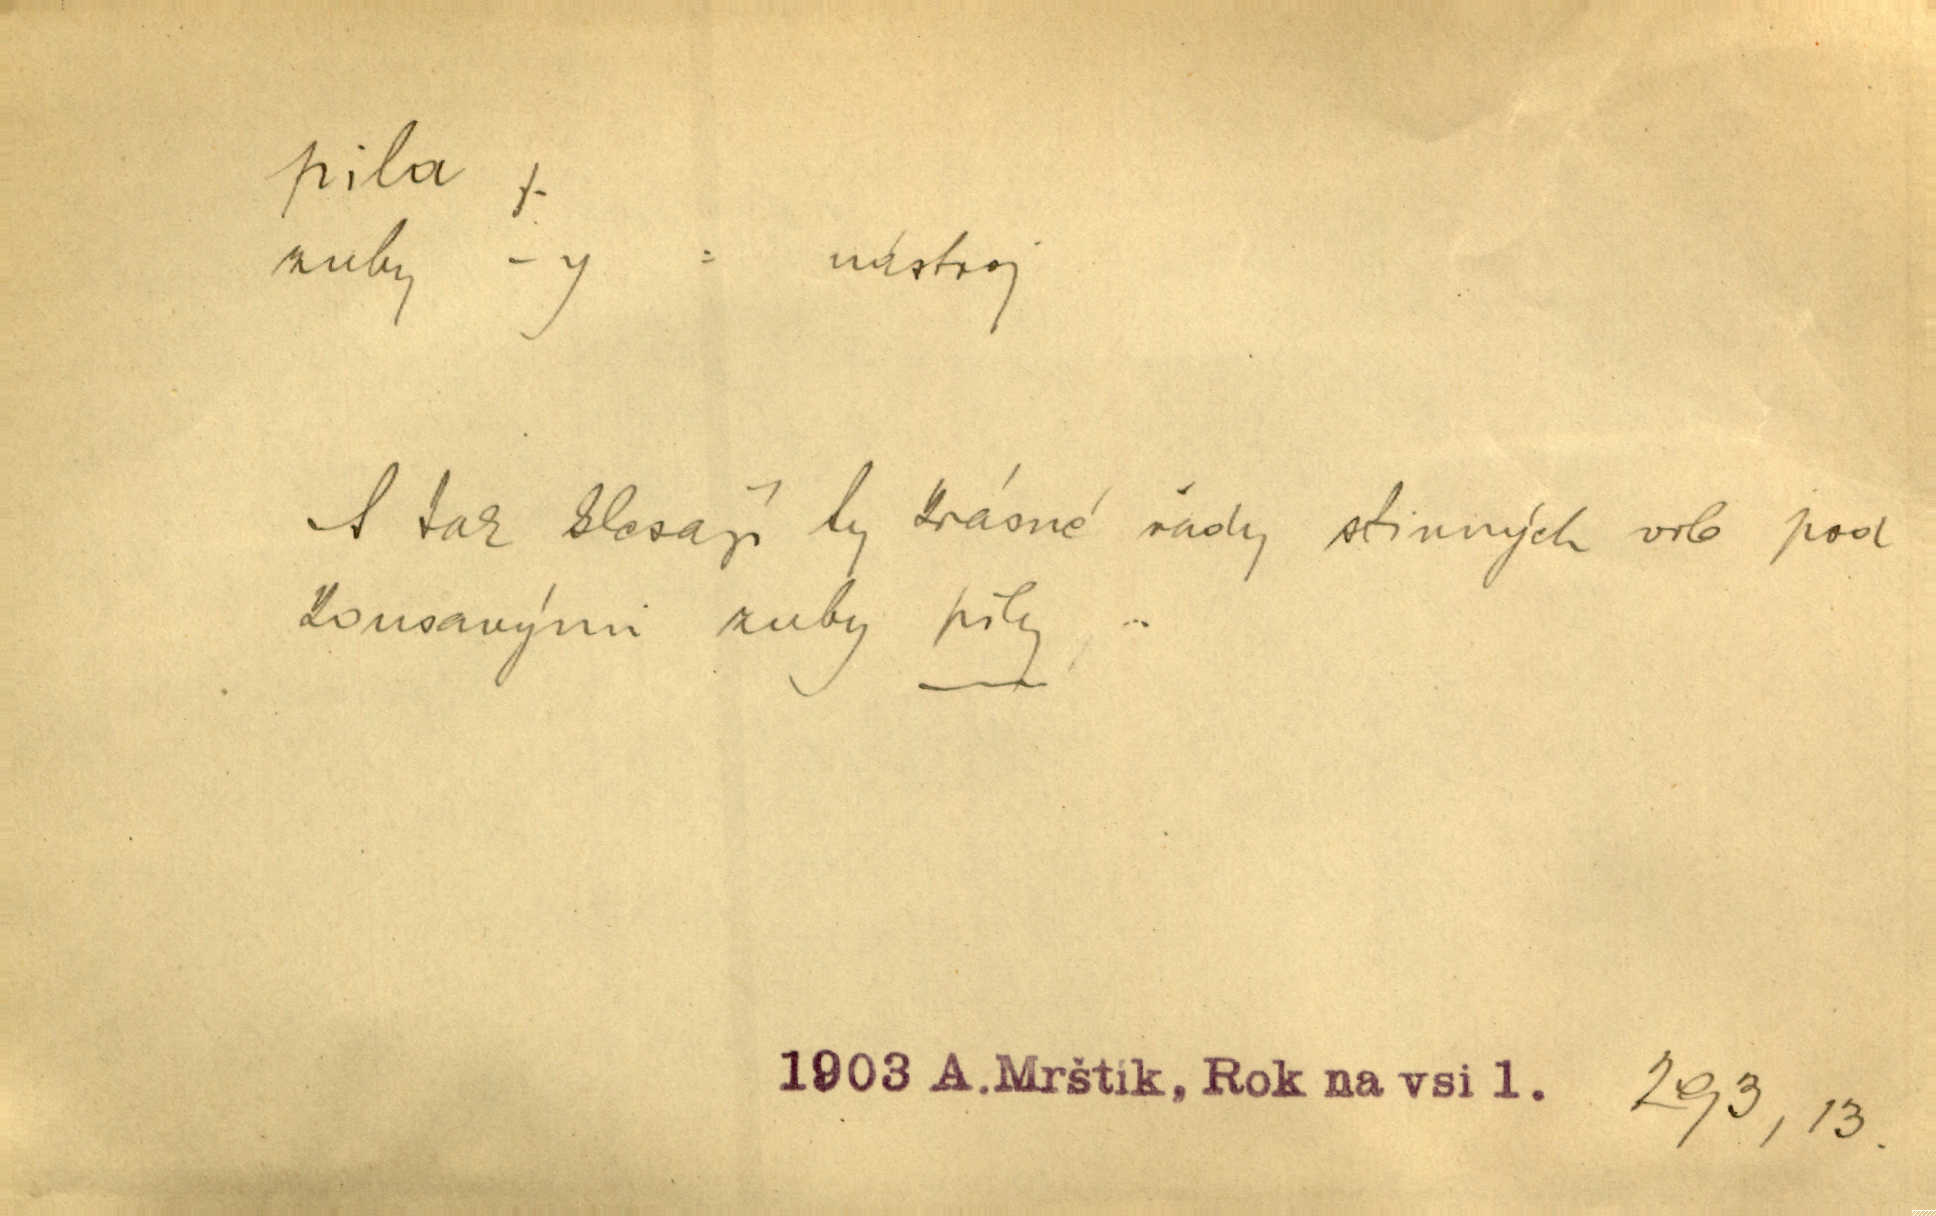 pila f.
zuby - y = nástroj
A tak klesají ty krásné řady stinných vrb pod
kousavými zuby pily, ..
1903 A.Mrštík, Rok na vsi 1. 293, 13.